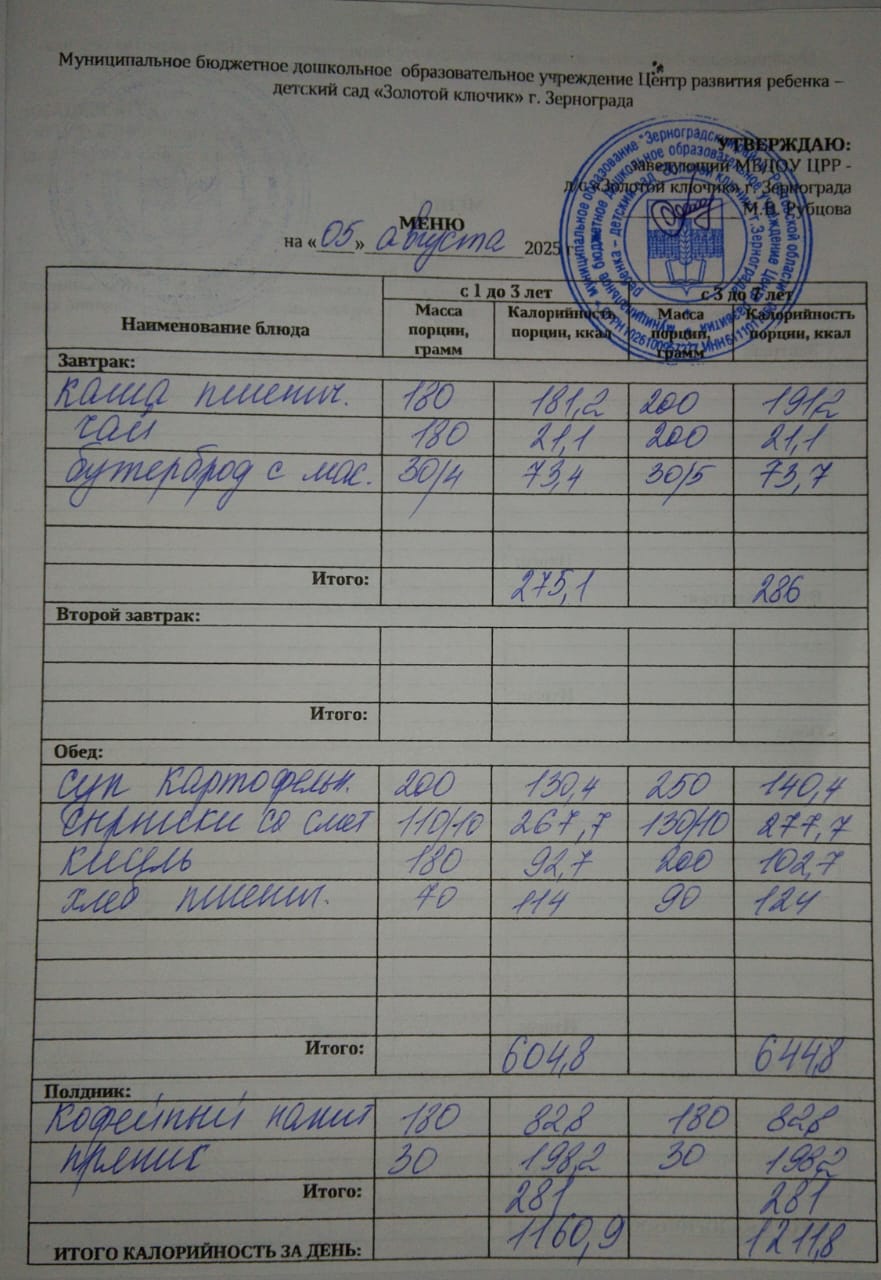 Муниципальное бюджетное дошкольное образовательное учреждение Центр развития ребенка –
детский сад «Золотой ключик» г. Зернограда
УТВЕРЖДАЮ:
Заведующий МБДОУ ЦРР -
д/с «Золотой ключик» г. Зернограда
М.В. Рубцова
МЕНЮ
на «05» августа 2025 г
Наименование блюда с 1 до 3 лет с 3 до 7 лет
Масса порции, грамм Калорийность порции, ккал Масса порции, грамм Калорийность порции, ккал
Завтрак:
каша пшенич. 180 181,2 200 191,2
чай 180 21,1 200 21,1
бутерброд с мас. 30/4 73,4 30/5 73,7
Итого: 275,1 286
Второй завтрак:
Итого:
Обед:
суп картофельн. 200 130,4 250 140,4
сырники со смет 110/10 267,7 130/10 277,7
кисель 180 92,7 200 102,7
хлеб пшенич. 70 114 90 124
Итого: 604,8 644,8
Полдник:
кофейный напит 180 82,8 180 82,8
пряник 30 198,2 30 198,2
Итого: 281 281
ИТОГО КАЛОРИЙНОСТЬ ЗА ДЕНЬ: 1160,9 1211,8